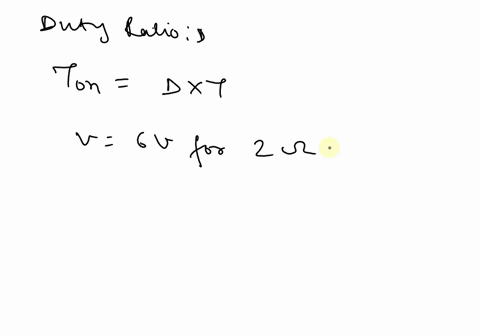 Duty Ratio: D
Ton = D×T
V = 6V for 2 Ω